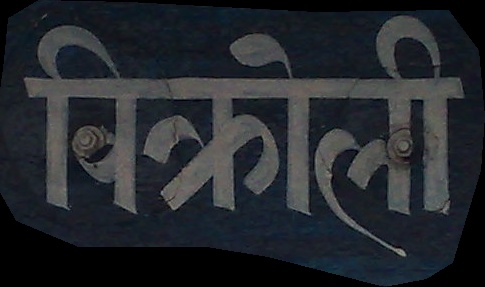 विक्रोली